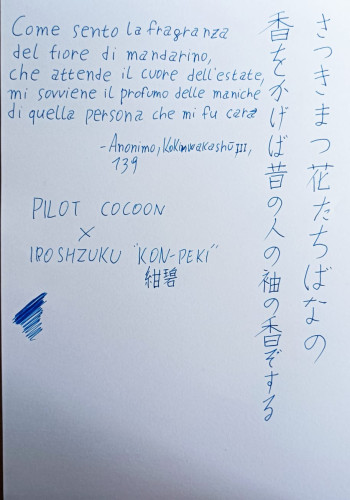 Come sento la fragranza
del fiore di mandarino,
che attende il cuore dell'estate,
mi sovviene il profumo delle maniche
di quella persona che mi fu cara
- Anonimo, Kokinwakashū III,
139
さつきまつ花たちばなの
香をかげば昔の人の袖の香ぞする
PILOT COCOON
×
IROSHZUKU "KON-PEKI"
紺碧